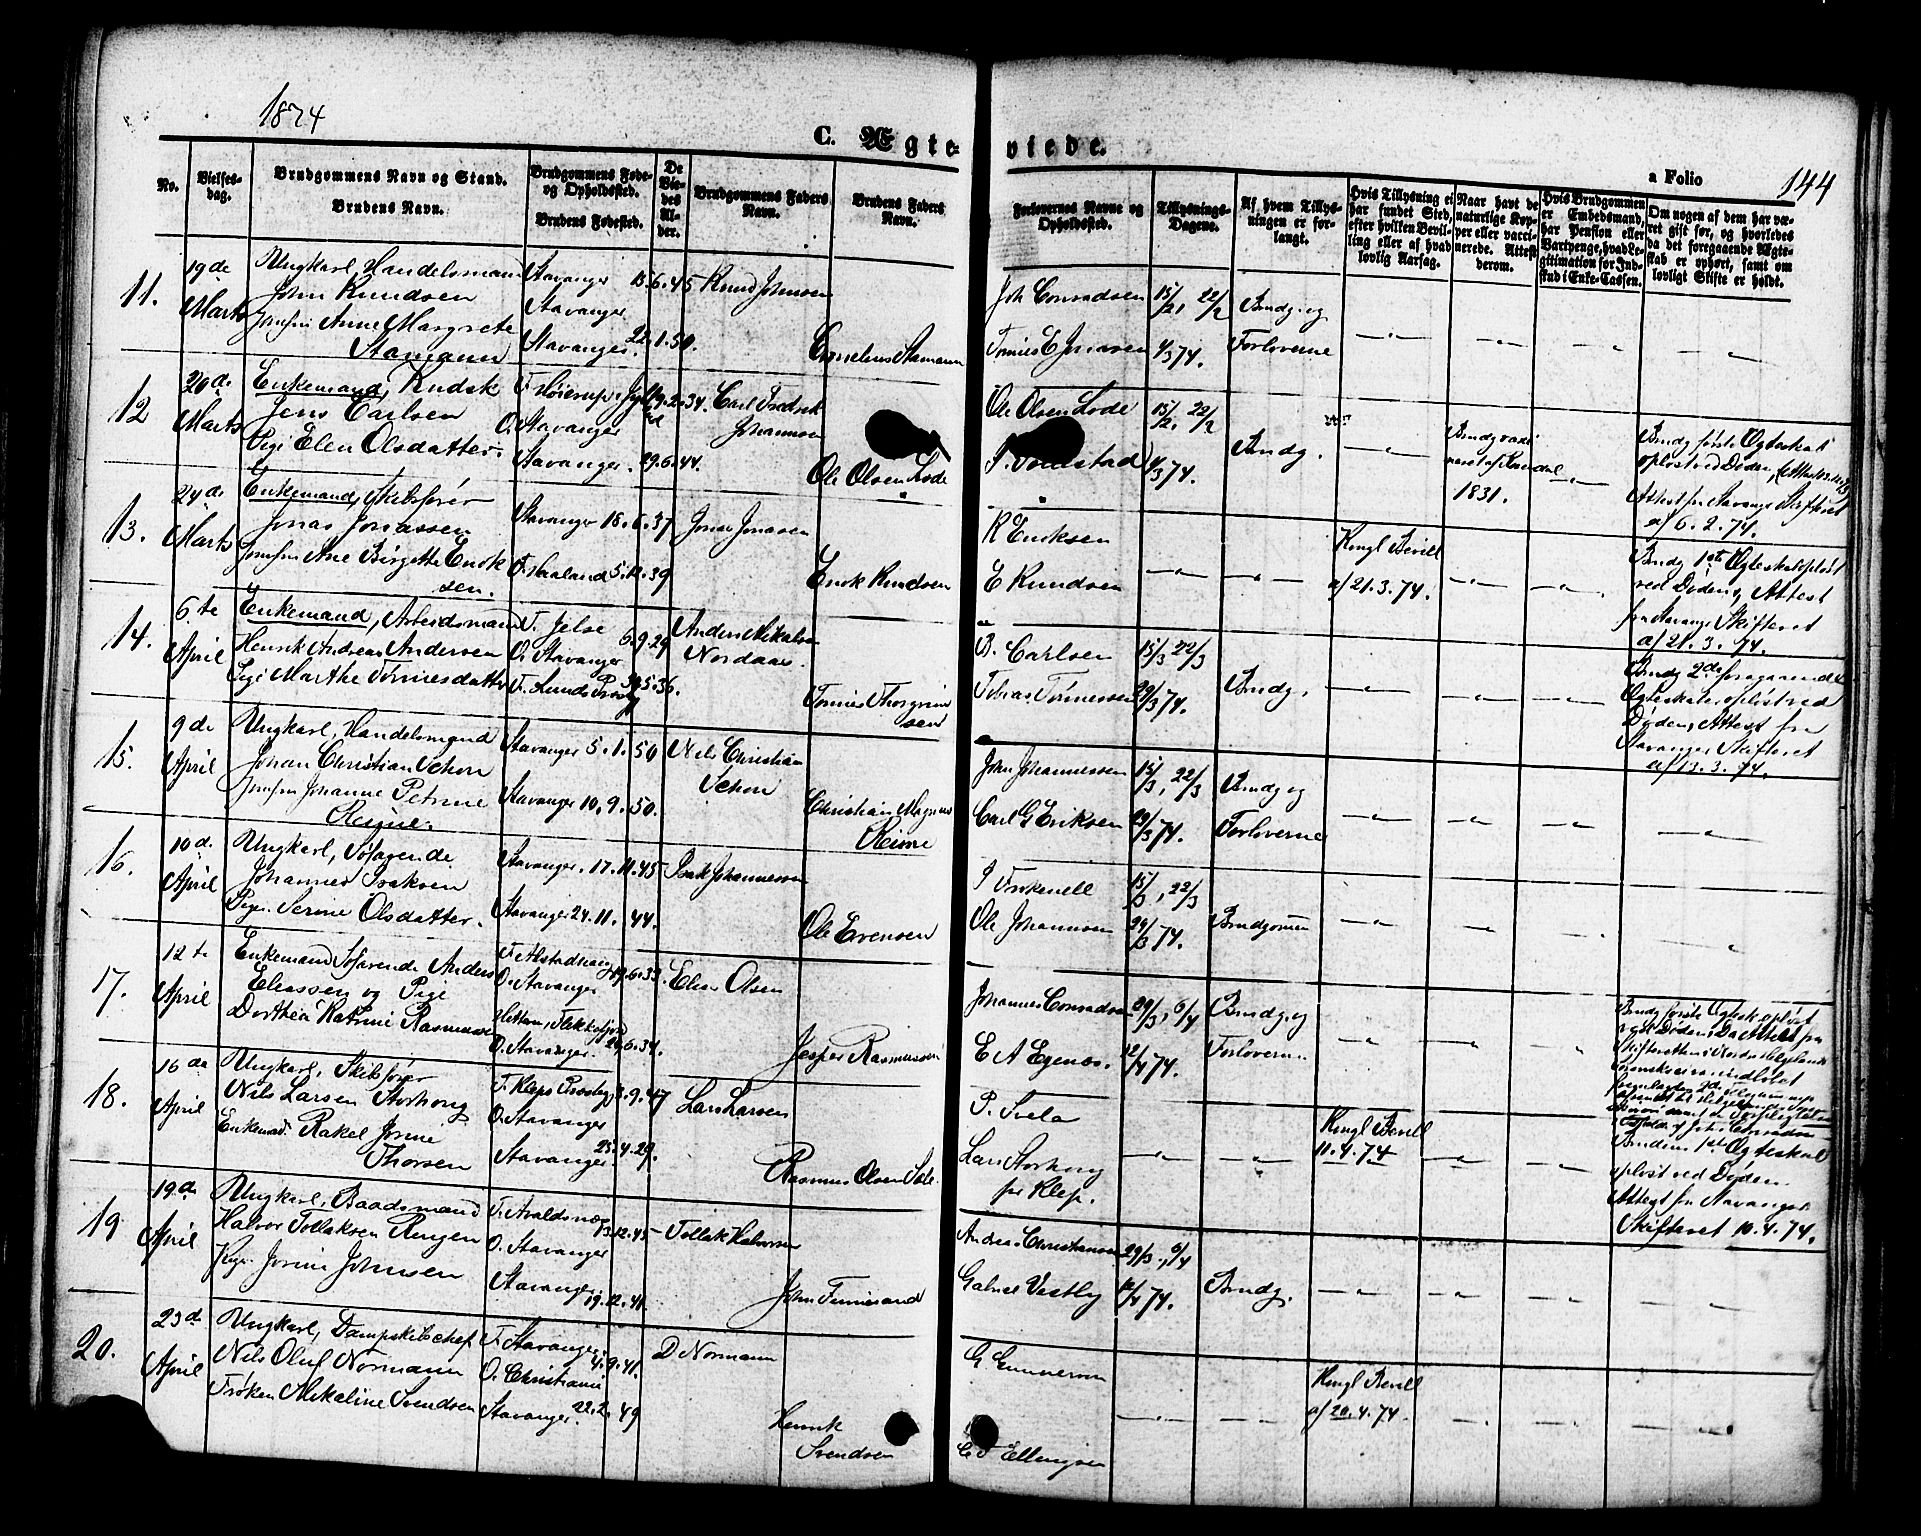 1874
C. Ægteviede.
a Folio 144
No.
Vielsesdag.
Brudgommens Navn og Stand.
Brudens Navn.
Brudgommens Føde- og Opholdssted.
Brudens Fødested.
De Viedes Alder.
Brudgommens Faders Navn.
Brudens Faders Navn.
Forlovernes Navne og Opholdssted.
Tillysnings-Dagene.
Af hvem Tillysningen er forlangt.
Hvis Tillysning ei har fundet Sted, efter hvilken Bevilling eller af hvad lovlig Aarsag.
Naar havt de naturlige Kopper eller vaccinerede. Attest derom.
Hvis Brudgommen er Embedsmand, har Pension eller Vartpenge, hvad Legitimation for Indskud i Enke-Cassen.
Om nogen af dem har været gift før, og hvorledes da det foregaaende Ægteskab er ophørt, samt om lovligt Skifte er holdt.
11. 19de Marts
Ungkarl, Handelsmand
John Knudsen
Jomfru Anne Margrete
Stamann
Stavanger 15.6.45
Stavanger
Stavanger. 22.1.50.
Knud Johnsen
Cornelius Stamann
Joh Conradsen
15/2, 22/2
1/3 74.
Brudg. og
Forloverne
12 20de Marts
Enkemand,
Jens Carlsen
Pige Elen Olsdatter.
O. Stavanger
Stavanger. 29.6.44.
Carl Fredrik
Johannsen
Ole Olsen Lode
Ole Olsen Lode
15/2, 22/2
1/3 74.
Brudg.
1831.
Brudg første Ægteskab
opløst ved Døden,
Attest fra Stavanger Skifteret
af 6.2.74.
13. 24de Marts
Enkemand, Skibsfører
Jonas Jonassen
Jomfru Ane Birgitte Eriksen.
Stavanger 18.6.37
F. Haaland 5.12.39
Jonas Jonassen
Erik Knudsen
R Eriksen
E Knudsen
Kongl Bevill
af 21.3.74.
Brudg 1ste Ægteskab opløst
ved Døden, Attest
fra Stavanger Skifteret
af 21.3.74.
14. 6te April
Enkemand, Arbeidsmand
Henrik Andreas Andersen
Pige Marthe Tønnesdatter
F. Jelse 6.9.29
O. Stavanger
F. Lunds Præstg
Anders Mikalsen
Nordaas.
Tønnes Thorgrimsen
B. Carlsen
Tobias Tønnessen
15/3 22/3
29/3 74.
Brudg.
Brudg 2de foregaaende
Ægteskaber opløst ved
Døden, Attest fra
Stavanger Skifteret
af 13.3.74.
15. 9de April
Ungkarl, Handelsmand
Johan Christian Schou
Jomfru Johanne Petrine
Reime.
Stavanger 5.1.50
Stavanger 10.9.50.
Nils Christian
Schou
Christian Magnus
Reime
John Johannessen
Carl G Eriksen
15/3, 22/3
29/3 74.
Brudg og
Forloverne
16. 10de April
Ungkarl, Søfarende
Johannes Isaksen
Pige Serine Olsdatter.
Stavanger. 17.11.45
Stavanger 24.11.44.
Isak Johannessen
Ole Evensen
Ole Johannsen
15/3, 22/3
29/3 74.
Brudgommen
17. 12te April
Enkemand Søfarende Anders
Eliassen og Pige
Dorthea Katrine Rasmussen
F. Alstadhaug 19.6.33.
O. Stavanger
Hitterø, Flekkefjord
O. Stavanger.
Elias Olsen
Jesper Rasmussen
Johannes Conradsen
E A Egenes.
29/3, 6/4
12/4 74.
Brudg. og
Forlovern.
Brudg første Ægtesk. opløst
ved Døden.
18. 16de April
Ungkarl, Skibsfører
Nils Larsen Storhoug
Enkemad. Rakel Josine
Thorsen
F. Klep Præstg 3.9.47
O. Stavanger
Stavanger 25.4.29.
Lars Larsen
Rasmus Olsen
P. Svela
Lars Storhoug
pr Klep.
Kongl Bevill
11.4.74
Brudens 1ste Ægteskab
opløst ved Døden.
Attest fra Stavanger
Skifteret 10.4.74.
19 19de April
Ungkarl, Baadsmand
Halvor Tollaksen Ringen
Pige Josine Johnsen
F. Avaldsnæs 13.12.45
O. Stavanger
Stavanger 19.12.41.
Tollak Halvorsen
Andreas Christiansen
Gabriel Vestby
29/3, 6/4
12/4 74.
Brudg.
20. 23de April
Ungkarl, Dampskibschef
Nils Oluf Normann
Frøken Mikaline Svendsen
F. Stavanger. 4.9.41.
O. Christiania
Stavanger. 22.2.49
D Normann
Henrik
Svendsen
G Gunnersen
C F Ellingsen
Kongl Bevill
af 20.4.74.